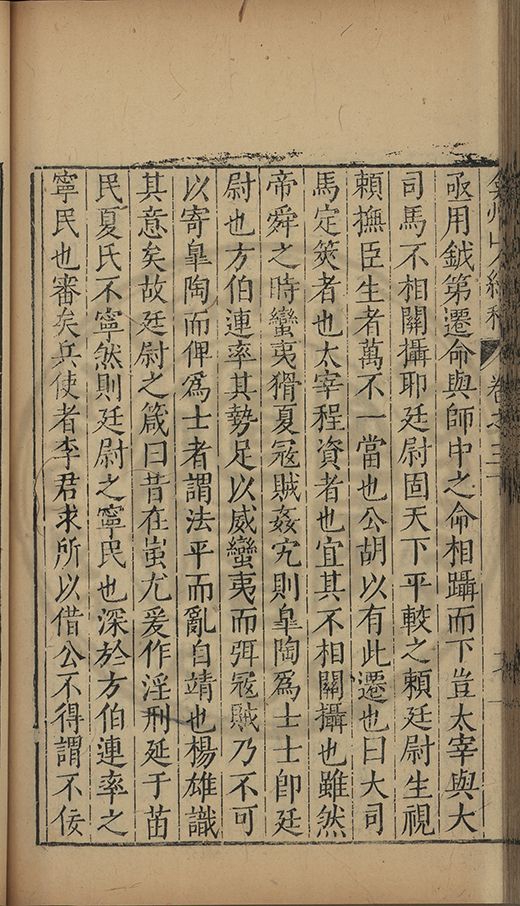 弇州山人續稿 卷之三十
亟用鉞第遷命與師中之命相躡而下豈太宰與大
司馬不相關攝耶廷尉固天下平較之賴廷尉生視
賴撫臣生者萬不一當也公胡以有此遷也曰大司
馬定筴者也太宰程資者也宜其不相關攝也雖然
帝舜之時蠻夷猾夏冦賊姦宄則臯陶爲士士卽廷
尉也方伯連率其勢足以威蠻夷而弭冦賊乃不可
以寄臯陶而俾爲士者謂法平而亂自靖也楊雄識
其意矣故廷尉之箴曰昔在蚩尤爰作淫刑延于苗
民夏氏不寧然則廷尉之寧民也深於方伯連率之
寧民也審矣兵使者李君求所以借公不得謂不佞